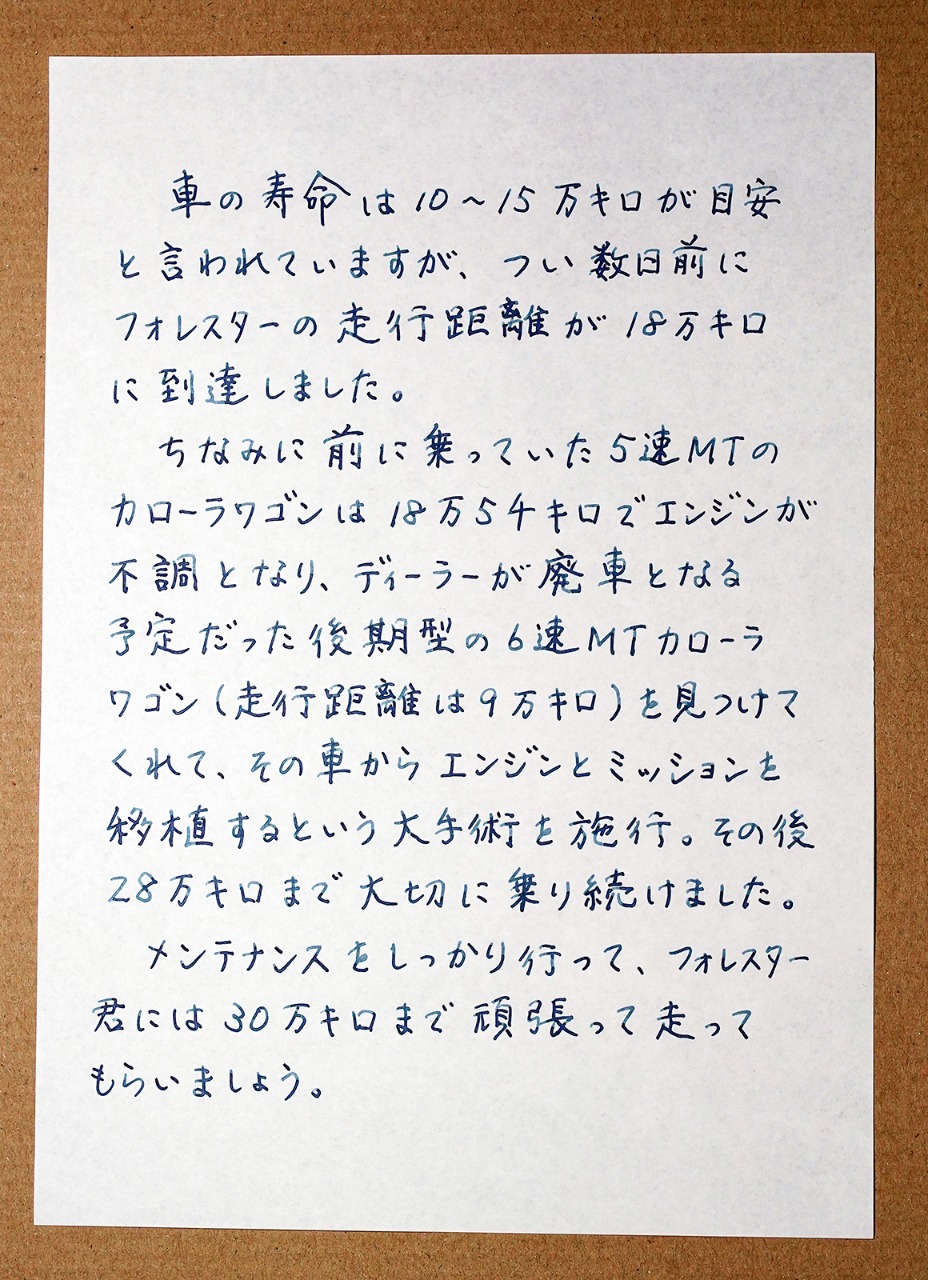 車の寿命は10～15万キロが目安
と言われていますが、つい数日前に
フォレスターの走行距離が18万キロ
に到達しました。
ちなみに前に乗っていた5速MTの
カローラワゴンは18万5千キロでエンジンが
不調となり、ディーラーが廃車となる
予定だった後期型の6速MTカローラ
ワゴン(走行距離は9万キロ)を見つけて
くれて、その車からエンジンとミッションを
移植するという大手術を施行。その後
28万キロまで大切に乗り続けました。
メンテナンスをしっかり行って、フォレスター
君には30万キロまで頑張って走って
もらいましょう。